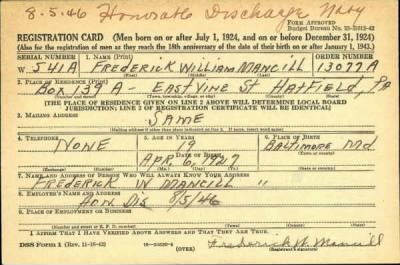 8-5-46 Honorable Discharge Navy
FORM APPROVED
REGISTRATION CARD (Men born on or after July 1, 1924, and on or before December 31, 1924)
(Also for the registration of men as they reach the 18th anniversary of the date of their birth on or after January 1, 1943.)
SERIAL NUMBER 1. NAME ORDER NUMBER
W 541A FREDERICK WILLIAM MANCILL 13077A
2. PLACE OF RESIDENCE (Print)
BOX 139 A - EAST VINE ST HATFIELD, PA
[THE PLACE OF RESIDENCE GIVEN ON LINE 2 ABOVE WILL DETERMINE LOCAL BOARD
JURISDICTION; LINE 2 OF REGISTRATION CERTIFICATE WILL BE IDENTICAL]
3. MAILING ADDRESS
SAME
4. TELEPHONE 5. AGE IN YEARS 6. PLACE OF BIRTH
NONE 19 BALTIMORE MD.
DATE OF BIRTH
APR. 6, 1927
7. NAME AND ADDRESS OF PERSON WHO WILL ALWAYS KNOW YOUR ADDRESS
FREDERICK W MANCILL "
8. EMPLOYER'S NAME AND ADDRESS
HON DIS 8/5/46
9. PLACE OF EMPLOYMENT OR BUSINESS
I AFFIRM THAT I HAVE VERIFIED ABOVE ANSWERS AND THAT THEY ARE TRUE.
DSS Form 1 (Rev. 11-16-42) (OVER) Frederick W. Mancill